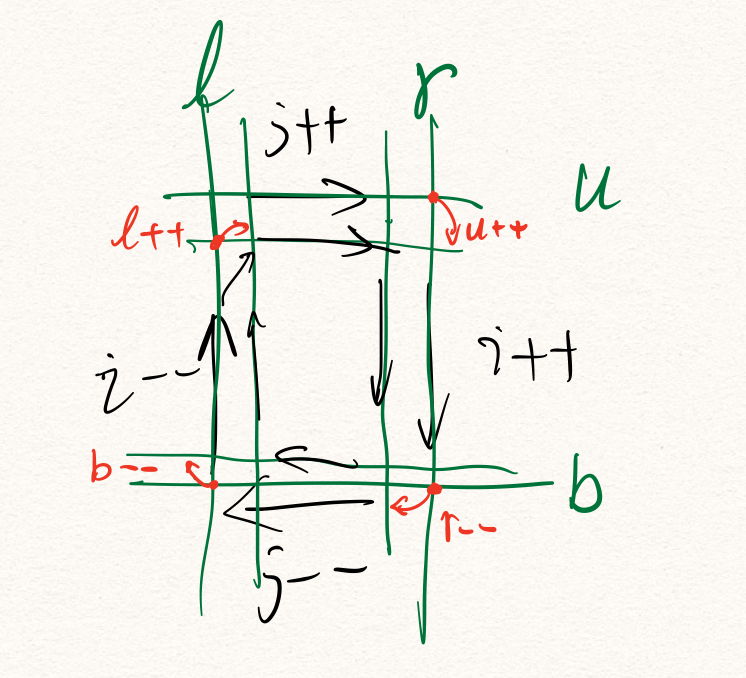 l r
j++
u
l++
u++
i--
i++
b--
b
r--
j--